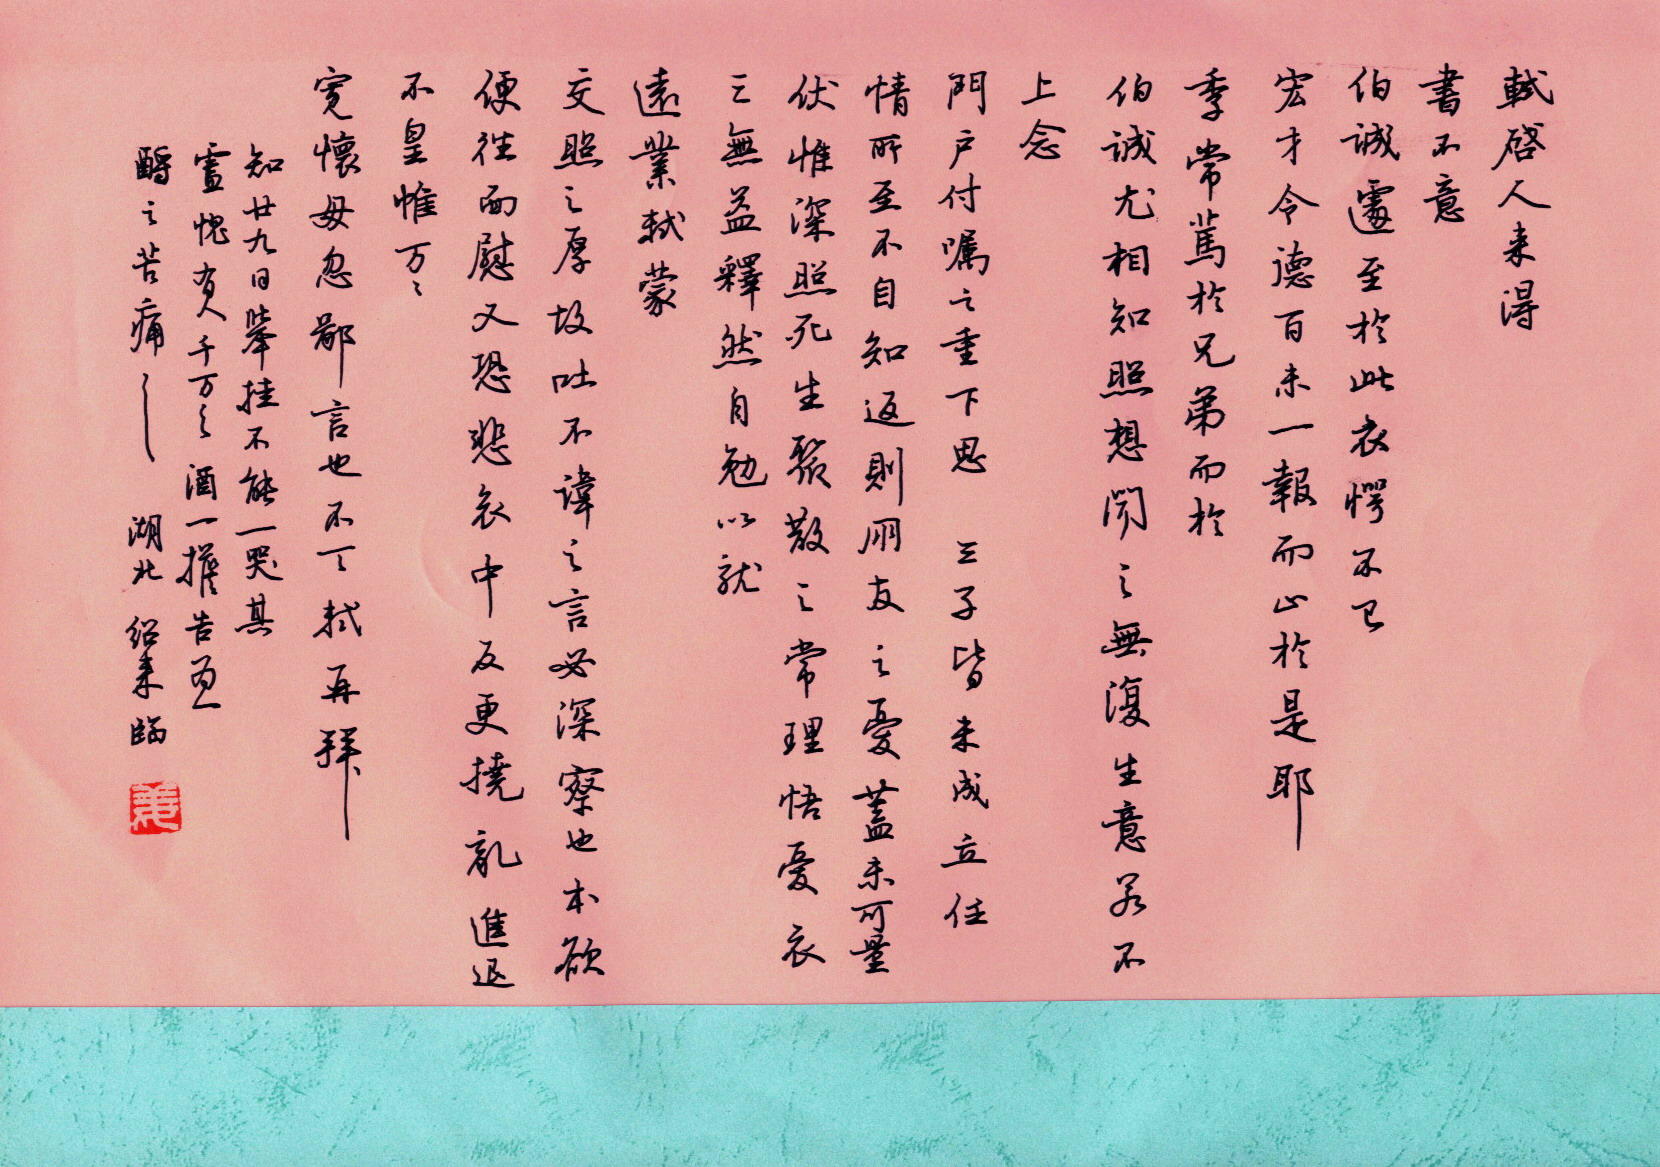 軾啓人来得
書不意
伯誠遽至於此哀愕不已
宏才令德百未一報而止於是耶
季常篤於兄弟而於
伯誠尤相知照想聞之無復生意若不
上念
門户付囑之重下思三子皆未成立任
情所至不自知返則朋友之憂蓋未可量
伏惟深照死生聚散之常理悟憂哀
之無益釋然自勉以就
遠業軾蒙
交照之厚故吐不諱之言必深察也本欲
便往面慰又恐悲哀中反更撓亂進退
不皇惟万〻
寬懷毋忽鄙言也不一軾再拜
知廿九日舉挂不能一哭其
靈愧有人千万〻酒一擔告為一
酹之苦痛〻
湖北 紹来臨